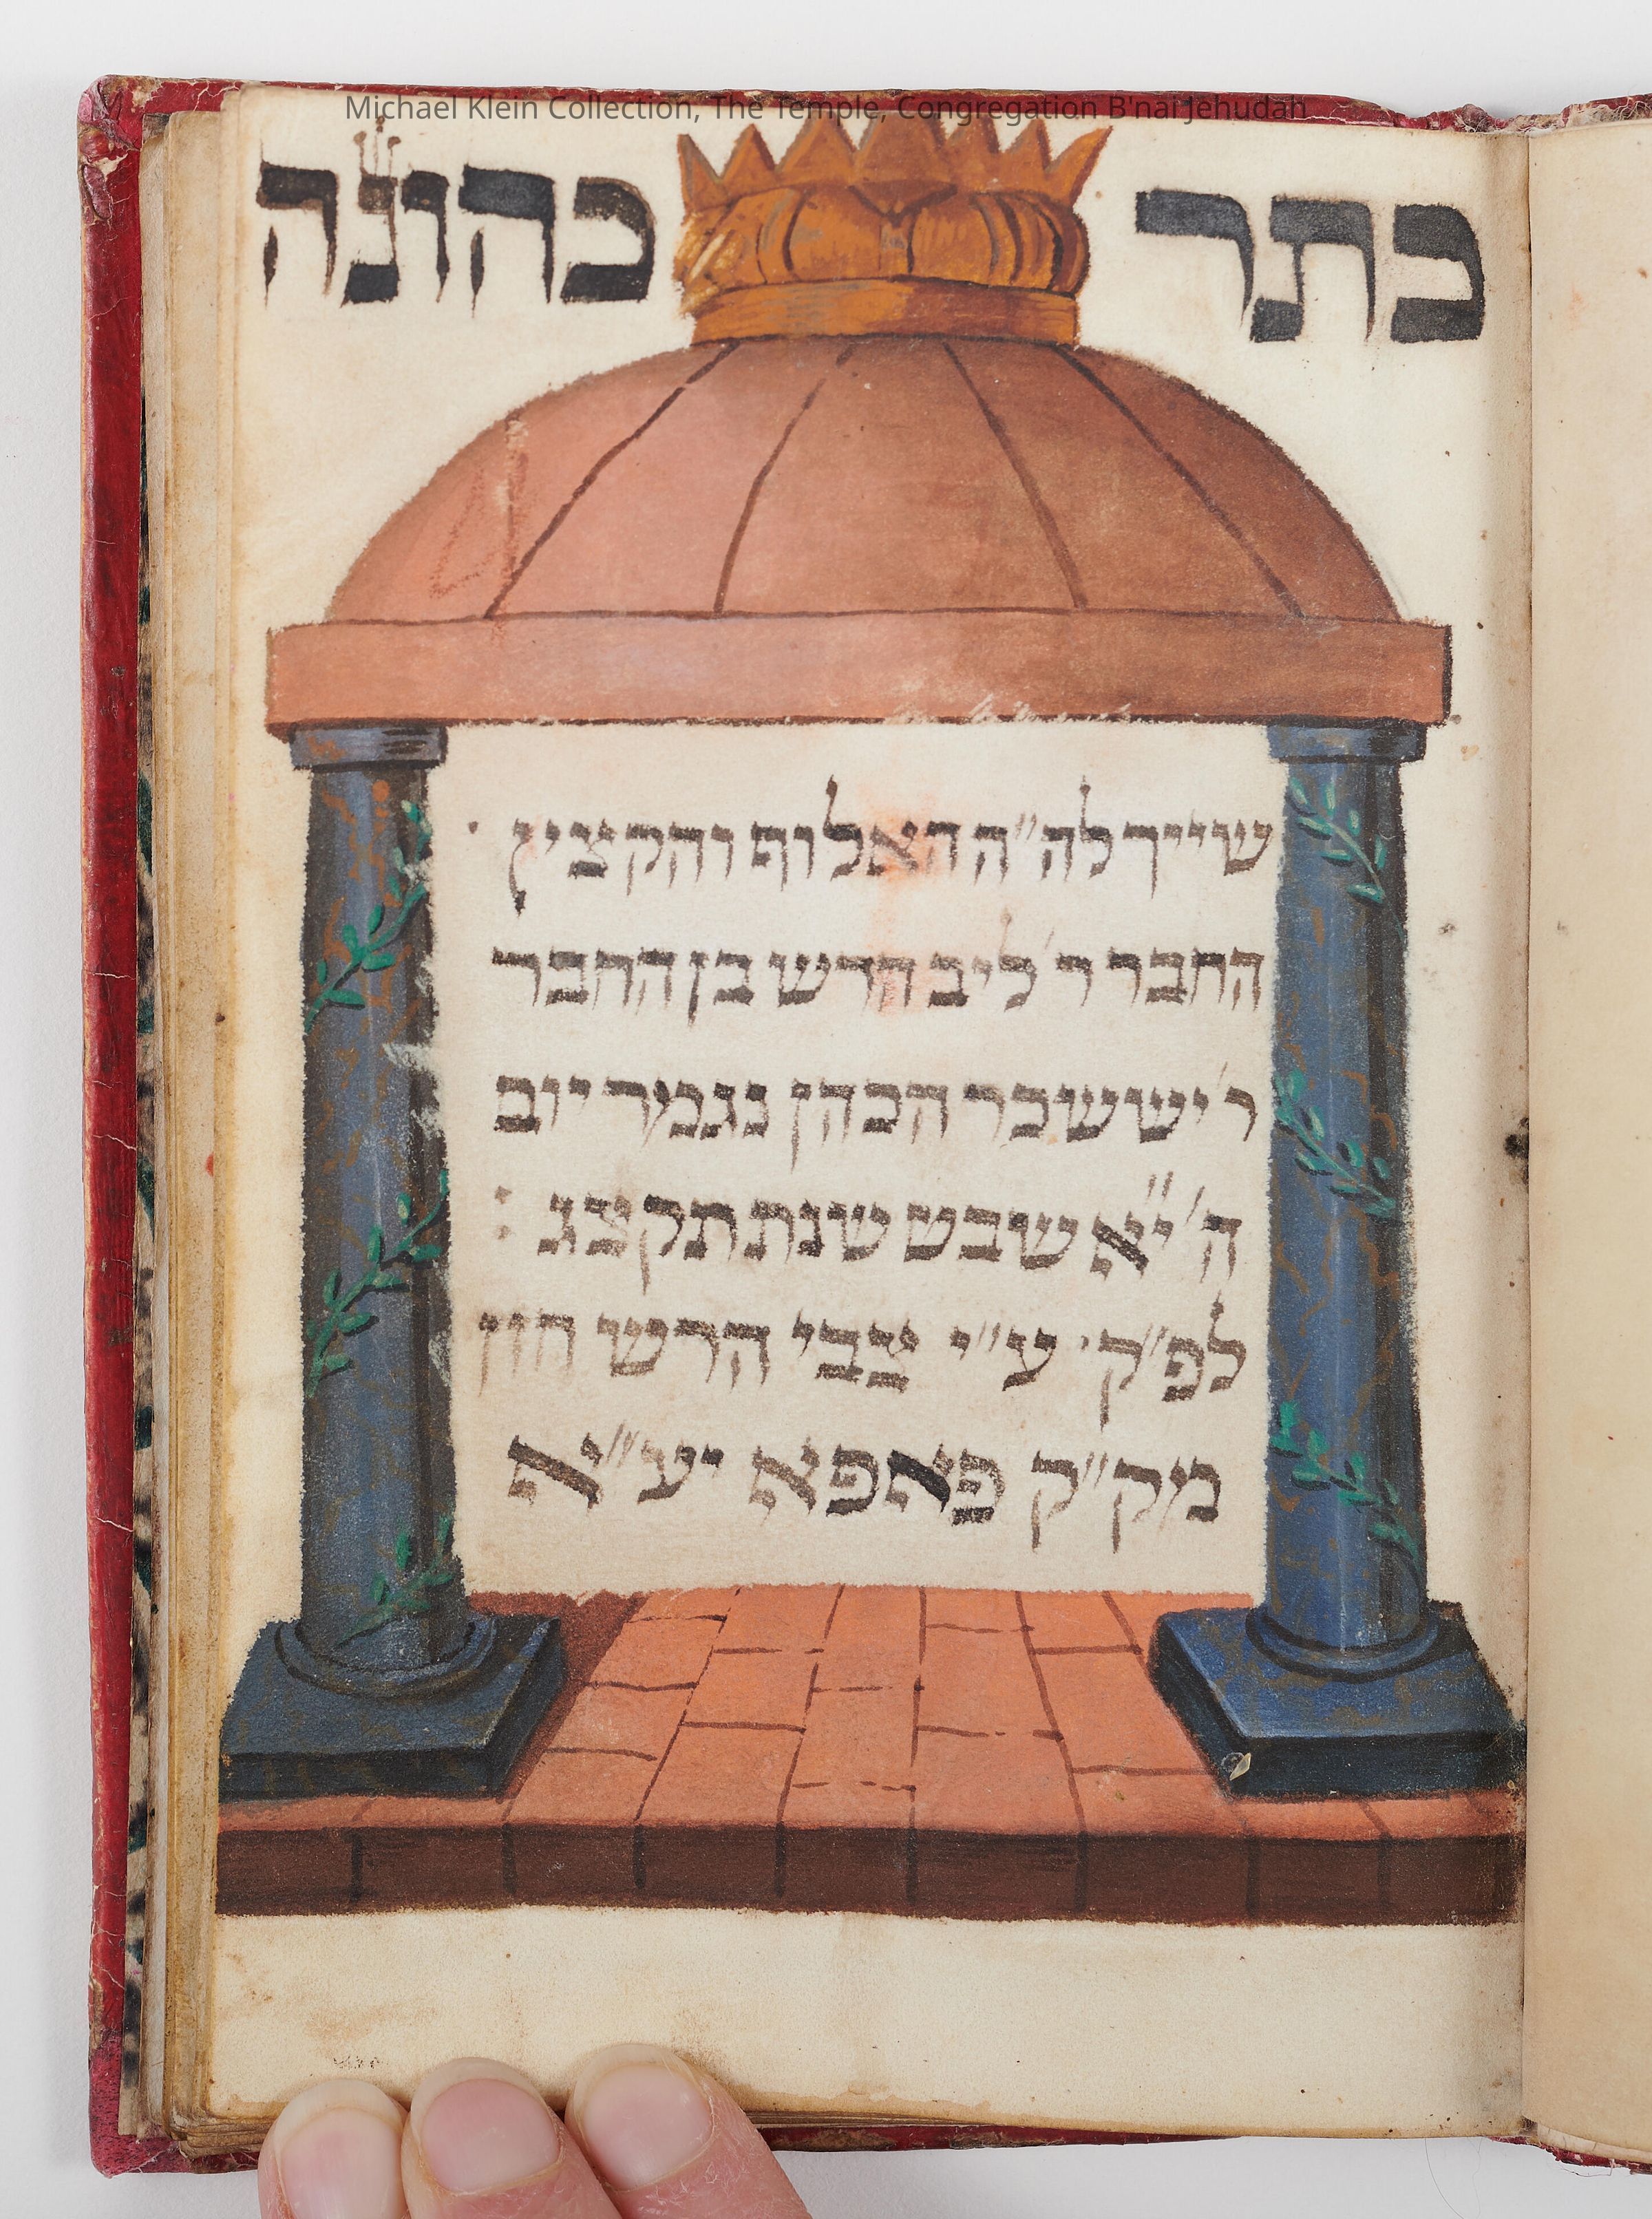 Michael Klein Collection, The Temple, Congregation B'nai Jehudah
כתר כהונה
שייך לה"ה האלוף והקצין ·
החבר ר' ליב הרש בן החבר
ר' יששכר הכהן נגמר יום
ה' י"א שבט שנת תקצג :
לפ"ק · ע"י צבי הרש חזן
מק"ק פאפא יע"א